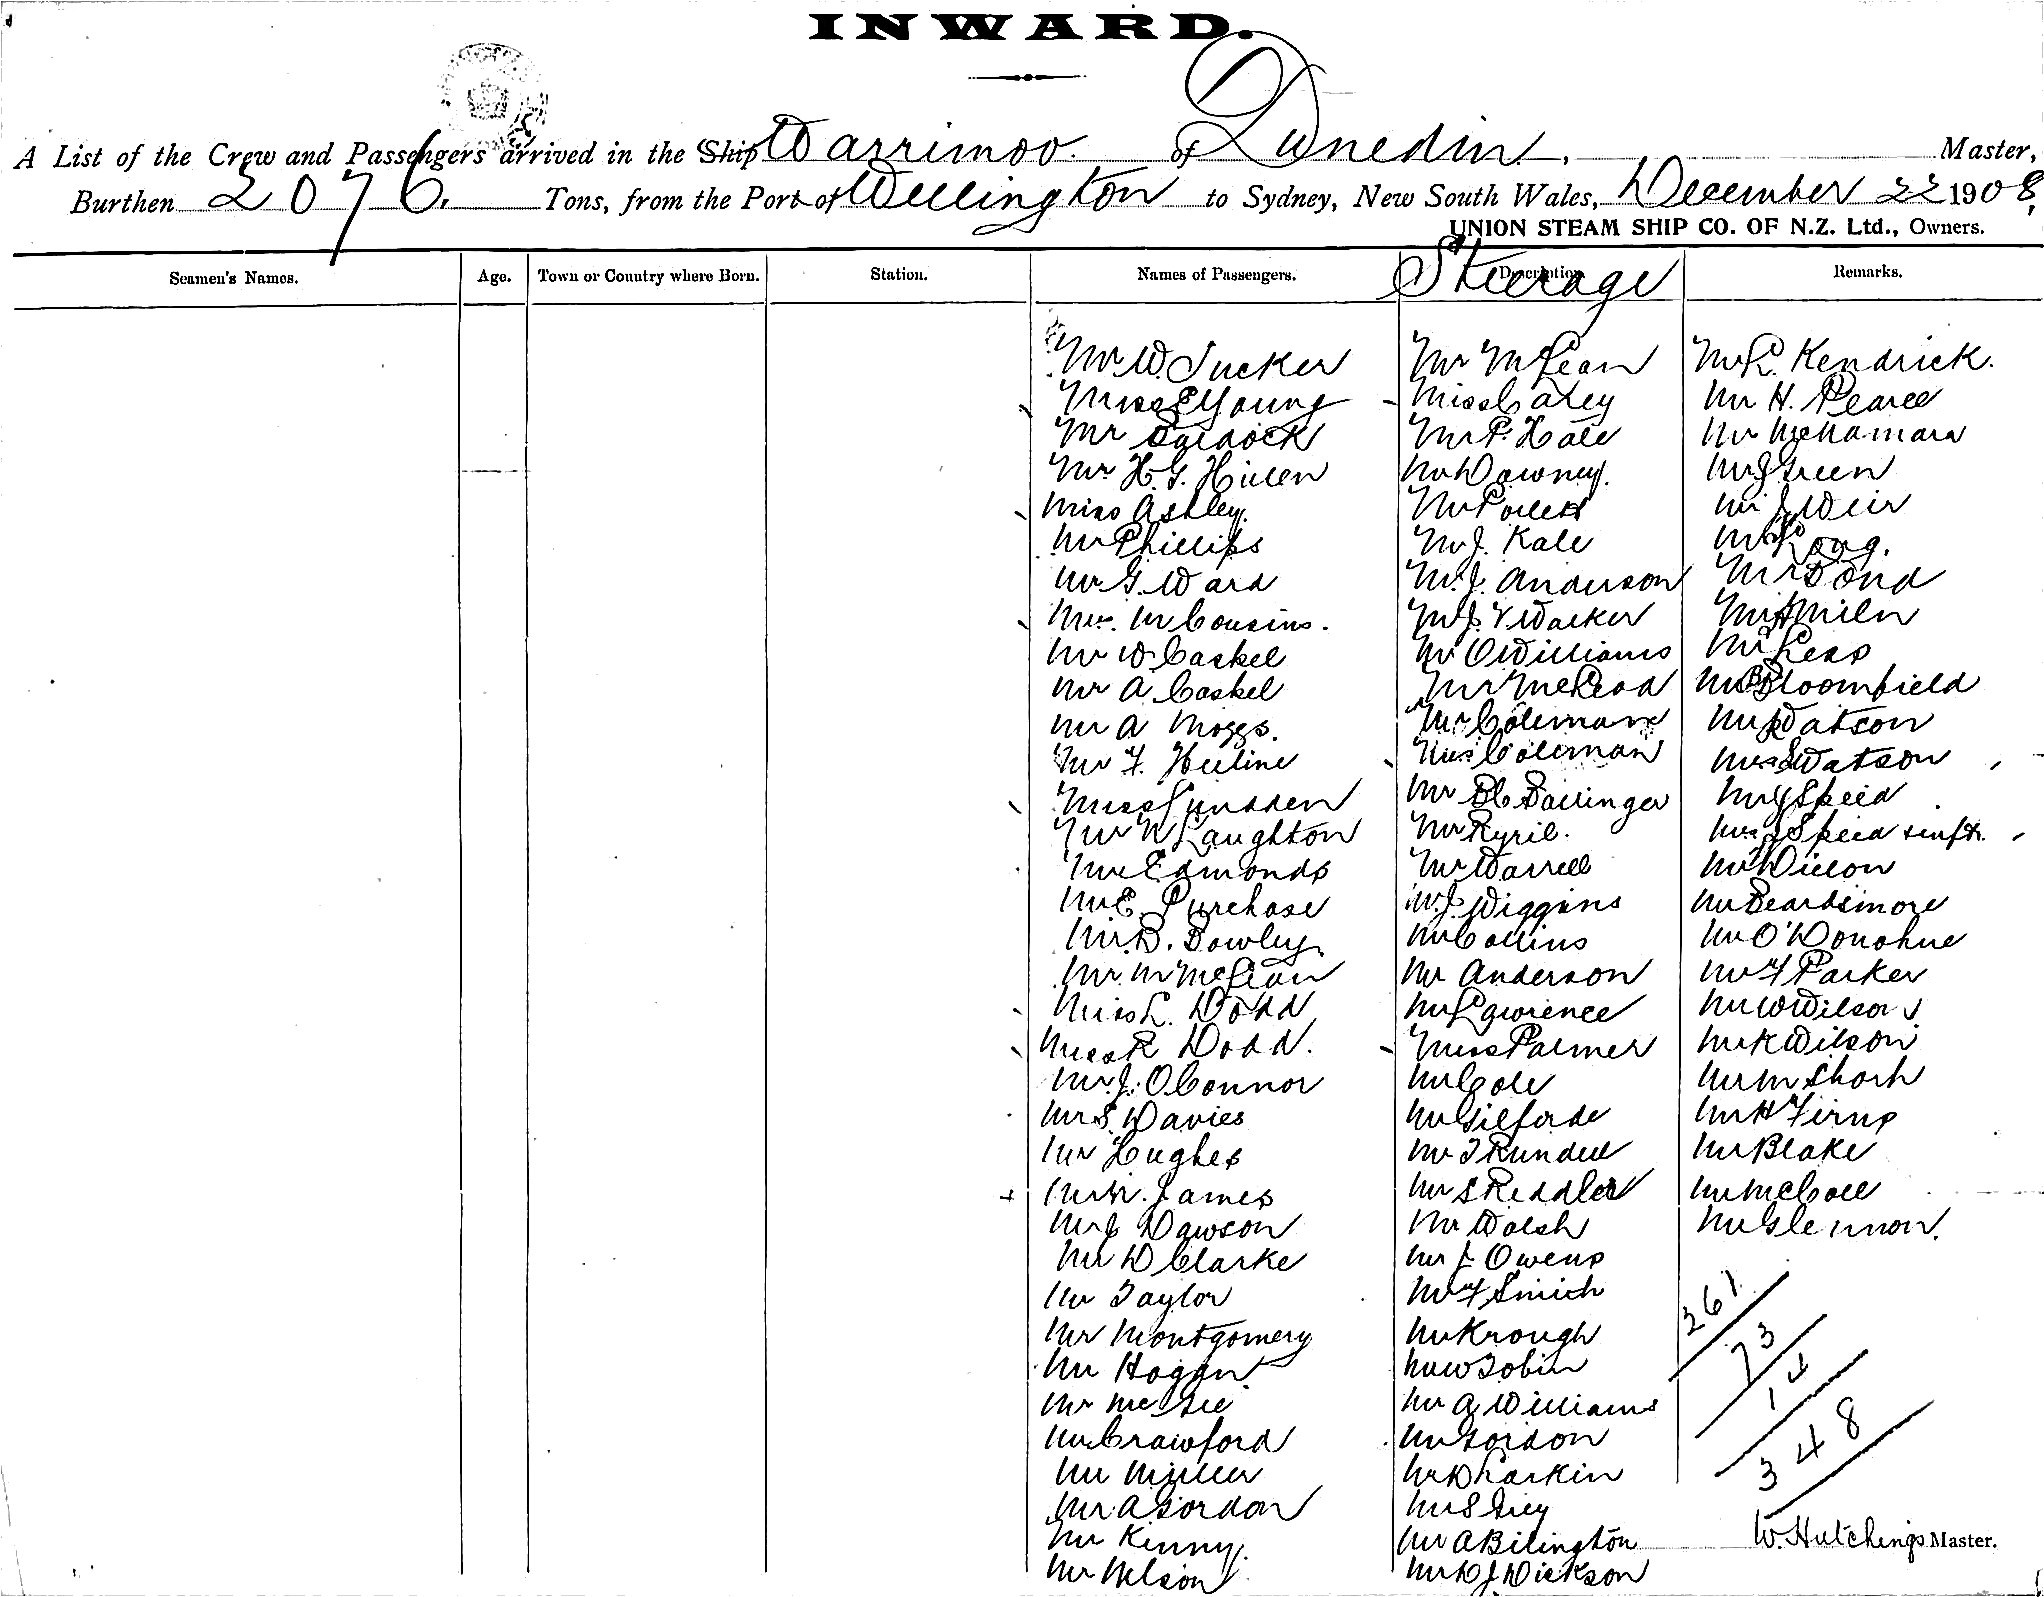 INWARD.
A List of the Crew and Passengers arrived in the Ship Warrimoo. of Dunedin. Master,
Burthen 2076. Tons, from the Port of Wellington to Sydney, New South Wales, December 22 1908,
UNION STEAM SHIP CO. OF N.Z. Ltd., Owners.
Steerage
Seamen's Names. Age. Town or Country where Born. Station. Names of Passengers. Description Remarks.
Mr W. Tucker
Miss E Young
Mr
Mr H. G. Hillen
Miss Ashley.
Mr Phillips
Mr G. Ward
M Cousins.
Mr W Caskel
Mr A Caskel
Mr A Moggs.
Mr F.
Miss Lunsden
Mr Laughton
Edmonds
Mr E. Purchase
Mr D. Dowley
Mr M McLean
Miss L. Dodd
Miss R Dodd.
Mr J. O'Connor
Mr S. Davies
Mr Hughes
James
Mr J Dawson
Mr D Clarke
Mr Taylor
Mr Montgomery
Mr Hogan
Mr
Mr Crawford
Mr Miller
Mr A Gordon
Mr Kinny.
Mr Nelson
Mr McLean
Miss Carey
Mr P. Hale
Mr Downey.
Mr
Mr J. Kale
Mr J. Anderson
Mr J. Y Walker
Mr O Williams
Mr McLeod
Mr Coleman
Mrs Coleman
Mr Ballinger
Mr Kyril.
Mr Warrell
Mr J. Wiggins
Mr Collins
Mr Anderson
Mr Lawrence
Miss Palmer
Mr Cole
Mr Gilforde
Mr T Rundell
Mr S Riddler
Mr Walsh
Mr J Owens
Mr F Smith
Mr Krough
Mr W Tobin
Mr A Williams
Mr Gordon
Mr D Larkin
Mr S Grey
Mr A Bilington
Mr D J. Dickson
Mr L. Kendrick.
Mr H. Pearce
Mr McNamara
Mr J Green
Mr J Weir
Mr Long.
Mr Bond
Mr A Miln
Mr Less
Mr B Bloomfield
Mr Watson
Mrs Watson
Mr J Speed
Mrs J Speed & inft.
Mr Dillon
Mr Beardsmore
Mr O'Donohue
Mr F Parker
Mr W Wilson
Mr K Wilson
Mr M Short
Mr H Firns
Mr Blake
Mr McColl
Mr Glennon.
261
73
14
348
W. Hutchings Master.